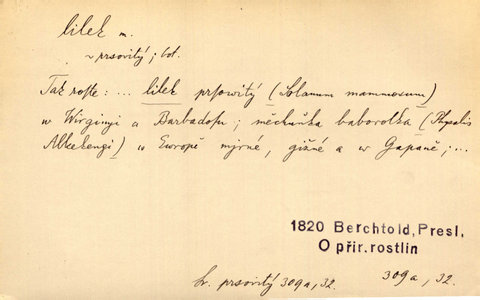 lilek m.
~ prsovitý; bot.
Tak roste: ... lilek prsowitý (Solanum mammosum)
w Wirginyi a Barbadosu; měchuňka baborolka (Physalis
Alkekengi) w Europě mjrné, gižné a w Gapaně; ...
1820 Berchtold, Presl,
O přir. rostlin
309a, 32.
lv. prsovitý 309a, 32.